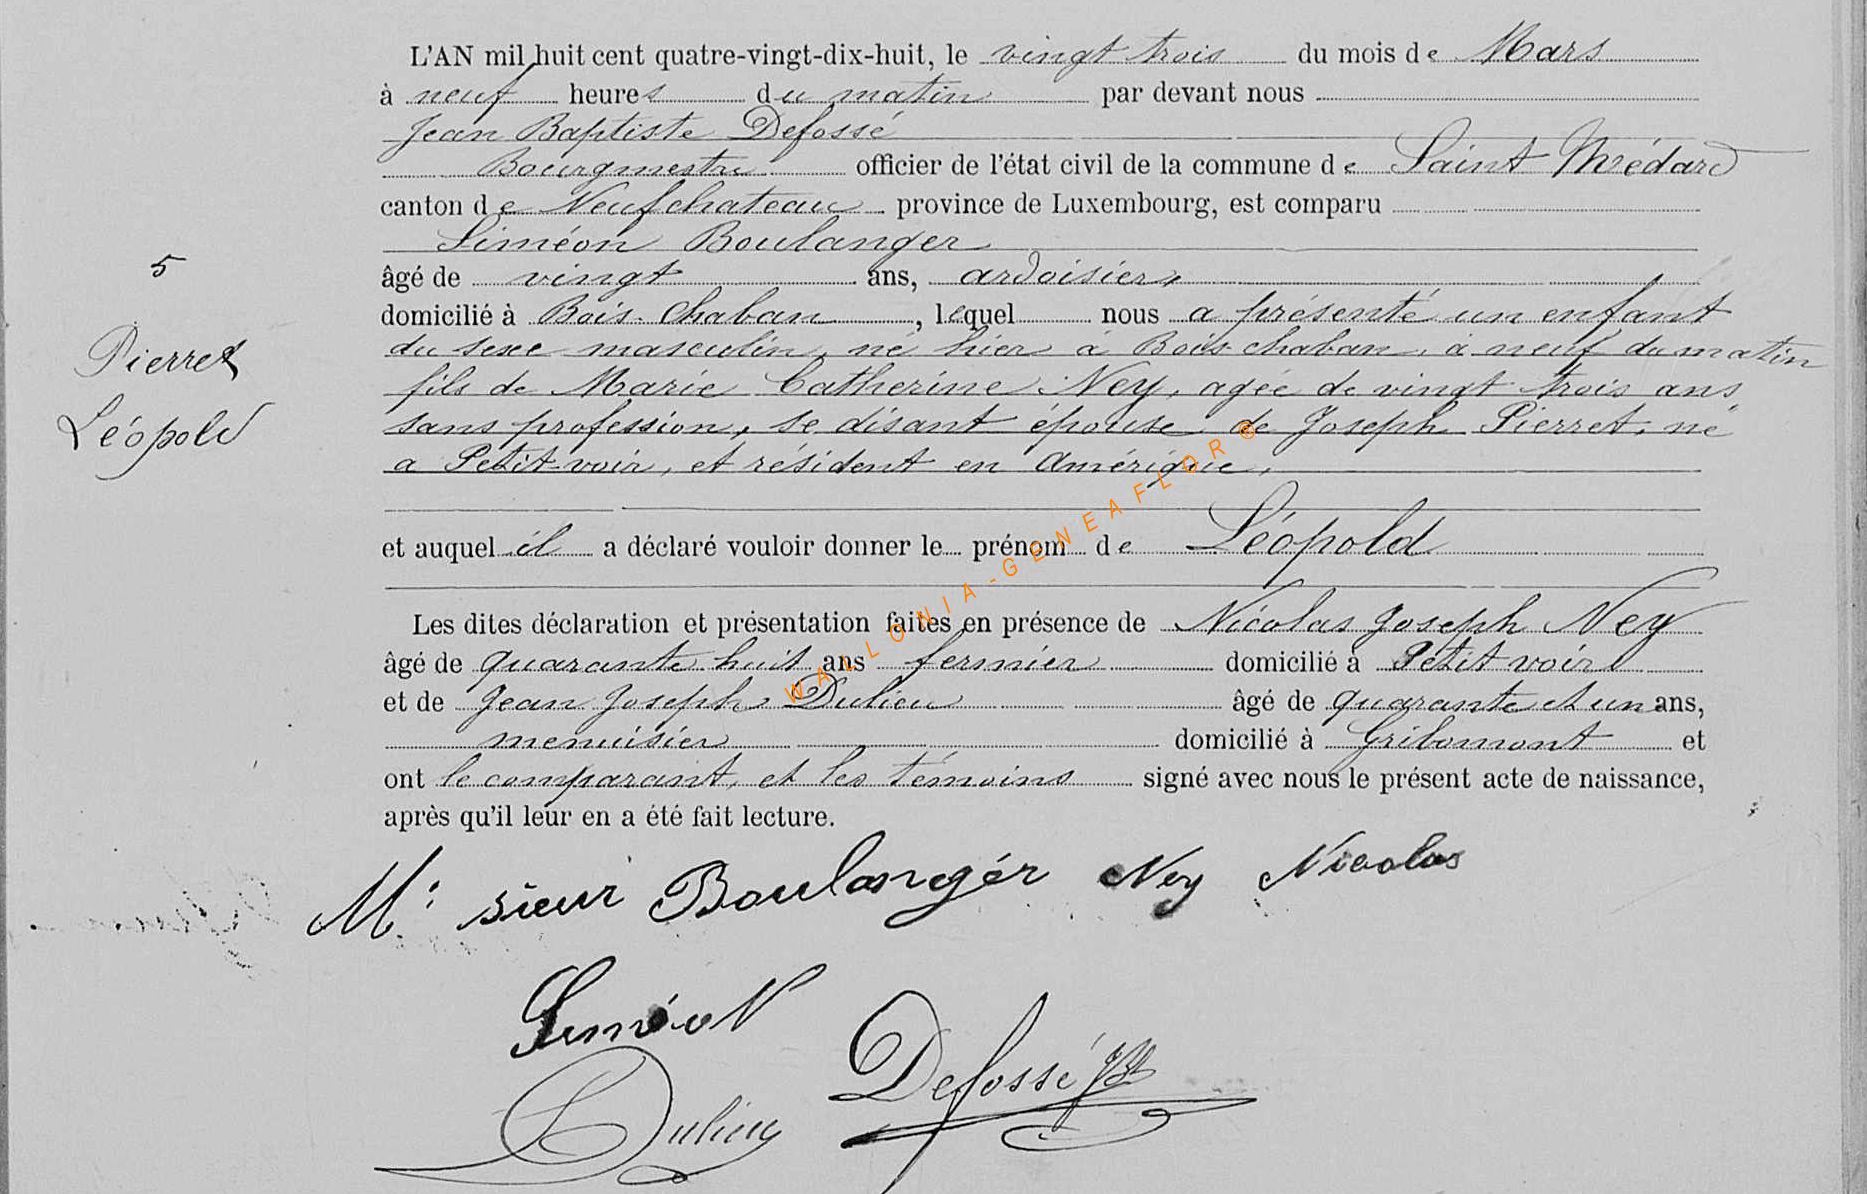 L'AN mil huit cent quatre-vingt-dix-huit, le vingt trois du mois de Mars
à neuf heures du matin par devant nous
Jean Baptiste Defossé
Bourgmestre officier de l'état civil de la commune de Saint Médard
canton de Neufchateau province de Luxembourg, est comparu
Siméon Boulanger
5
âgé de vingt ans, ardoisier,
domicilié à Bois-Chaban, lequel nous a présenté un enfant
du sexe masculin, né hier à Bois-chaban, à neuf du matin
Pierret
fils de Marie Catherine Ney, agée de vingt trois ans
Léopold
sans profession, se disant épouse de Joseph Pierret, né
a Petit-voir, et résident en Amérique,
et auquel il a déclaré vouloir donner le prénom de Léopold
Les dites déclaration et présentation faites en présence de Nicolas Joseph Ney
âgé de quarante huit ans fermier domicilié à Petit voir
et de Jean Joseph Dulieu âgé de quarante et un ans,
menuisier domicilié à Gribomont et
ont le comparant, et les témoins signé avec nous le présent acte de naissance,
après qu'il leur en a été fait lecture.
M. sieur Boulangér Ney Nicolas
Siméon
Dulieu Defossé JBt
WALLONIA-GENEAFLOR®